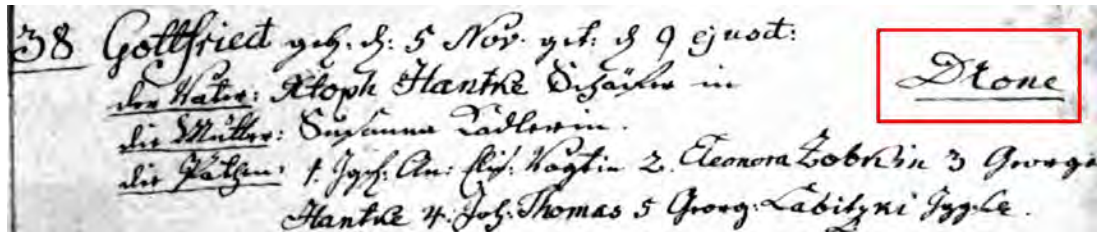 38 Gottfried geb. d: 5 Nov. get: d 9 ejusd:
der Vater: Xtoph Hantke Schäfer in Drone
die Mutter: Susanna Tadlerin.
die Pathen: 1. Jgfr. An: Elis. Vogtin 2. Eleonora Zobkin 3 George
Hantke 4. Joh: Thomas 5 Georg: Labitzki